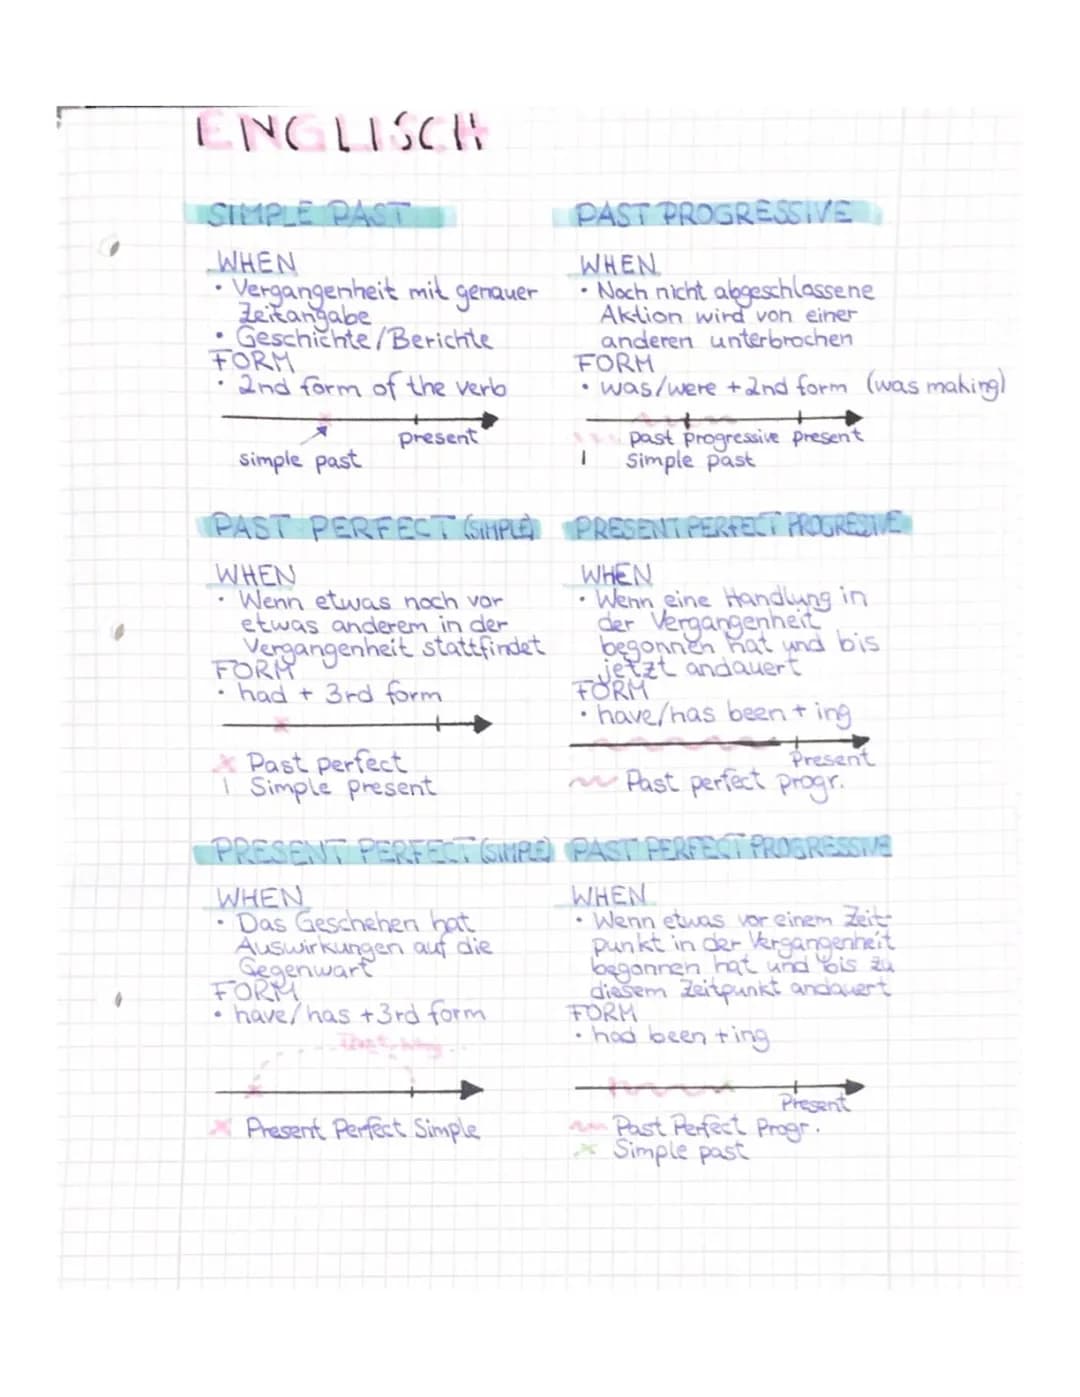 ENGLISCH
SIMPLE PAST
WHEN
• Vergangenheit mit genauer
Zeitangabe
• Geschichte/Berichte
FORM
• 2nd form of the verb
present
simple past
PAST PROGRESSIVE
WHEN
• Noch nicht abgeschlossene
Aktion wird von einer
anderen unterbrochen
FORM
• was/were + 2nd form (was making)
past progressive present
simple past
PAST PERFECT (SIMPLE)
WHEN
• Wenn etwas noch vor
etwas anderem in der
Vergangenheit stattfindet
FORM
• had + 3rd form
x Past perfect
| Simple present
PRESENT PERFECT PROGRESSIVE
WHEN
• Wenn eine Handlung in
der Vergangenheit
begonnen hat und bis
jetzt andauert
FORM
• have/has been + ing
Present
Past perfect progr.
PRESENT PERFECT (SIMPLE)
WHEN
• Das Geschehen hat
Auswirkungen auf die
Gegenwart
FORM
• have/has + 3rd form
x Present Perfect Simple
PAST PERFECT PROGRESSIVE
WHEN
• Wenn etwas vor einem Zeit-
punkt in der Vergangenheit
begonnen hat und bis zu
diesem Zeitpunkt andauert
FORM
• had been + ing
Present
Past Perfect Progr.
x Simple past